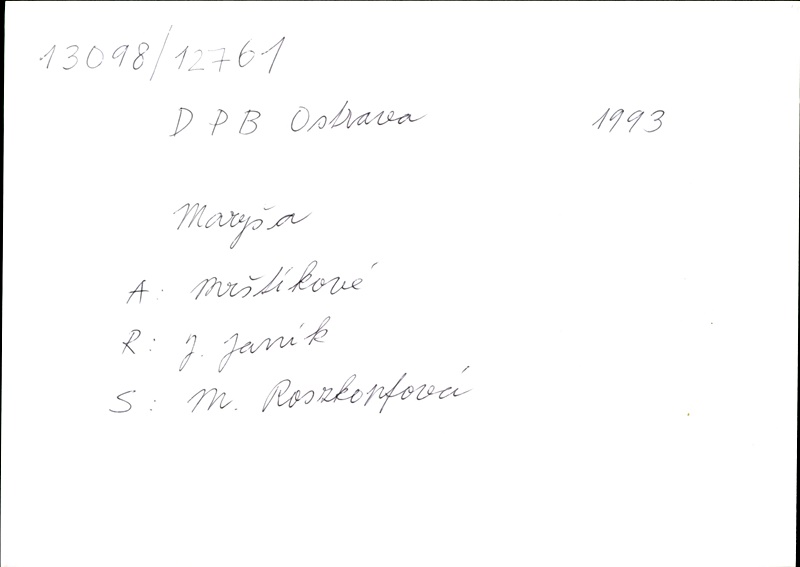 13098/12761
D P B Ostrava 1993
Maryša
A: Mrštíkové
R: J. Janík
S: M. Roszkopfová